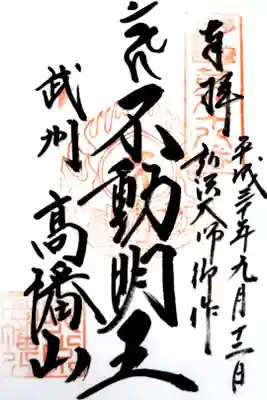 奉拝
平成三十年九月十二日
弘法大師御作
不動明王
武州 高幡山